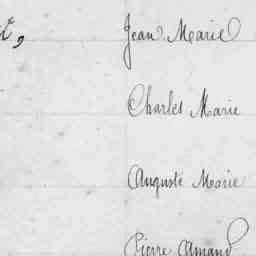 Jean Marie
Charles Marie
Auguste Marie
Pierre Amand